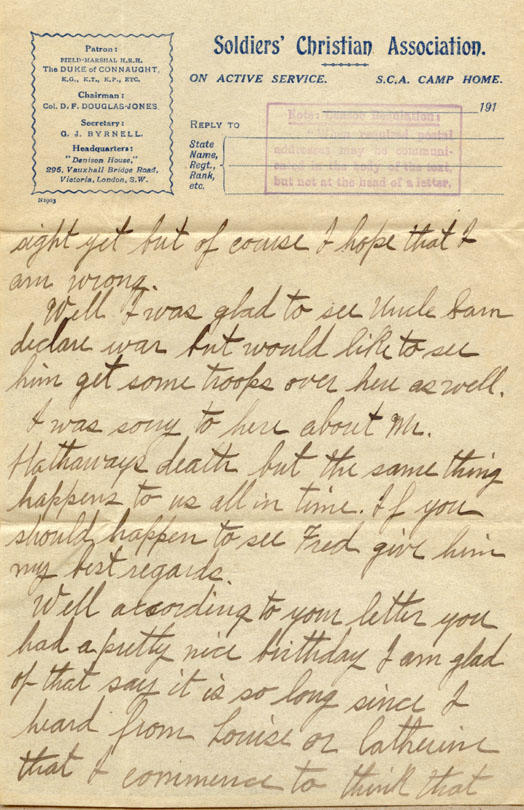 Patron:
FIELD-MARSHAL H.R.H.
The DUKE of CONNAUGHT,
K.G., K.T., K.P., ETC.
Chairman:
Col. D. F. DOUGLAS-JONES.
Secretary:
G. J. BYRNELL.
Headquarters:
"Denison House,"
296, Vauxhall Bridge Road,
Victoria, London, S.W.
Soldiers' Christian Association.
ON ACTIVE SERVICE. S.C.A. CAMP HOME.
191
REPLY TO
State
Name,
Regt.,
Rank,
etc.
Note: Censor Regulation:
When required postal
addresses may be communi-
cated in the body of the text,
but not at the head of a letter.
sight yet but of course I hope that I
am wrong.
Well I was glad to see Uncle Sam
declare war but would like to see
him get some troops over here as well.
I was sorry to here about Mr.
Hathaways death but the same thing
happens to us all in time. If you
should happen to see Fred give him
my best regards.
Well according to your letter you
had a pretty nice birthday I am glad
of that say it is so long since I
heard from Louise or Catherine
that I commence to think that